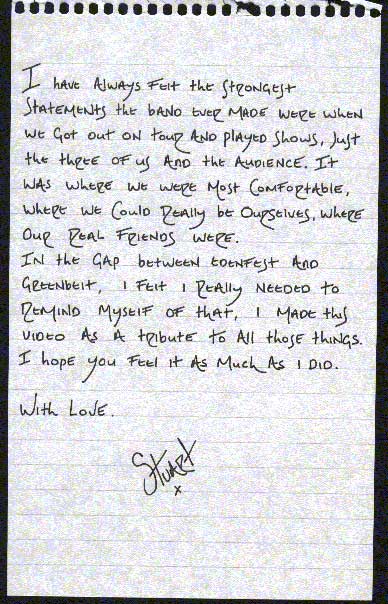 I have Always Felt the Strongest
Statements the band ever made were when
we got out on tour and played shows, just
the three of us and the audience. It
was where we were most comfortable,
where we could really be ourselves, where
our real friends were.
In the gap between Edenfest and
Greenbelt, I felt I really needed to
remind myself of that, I made this
video as a tribute to all those things.
I hope you feel it as much as I did.
With Love.
Stuart
x